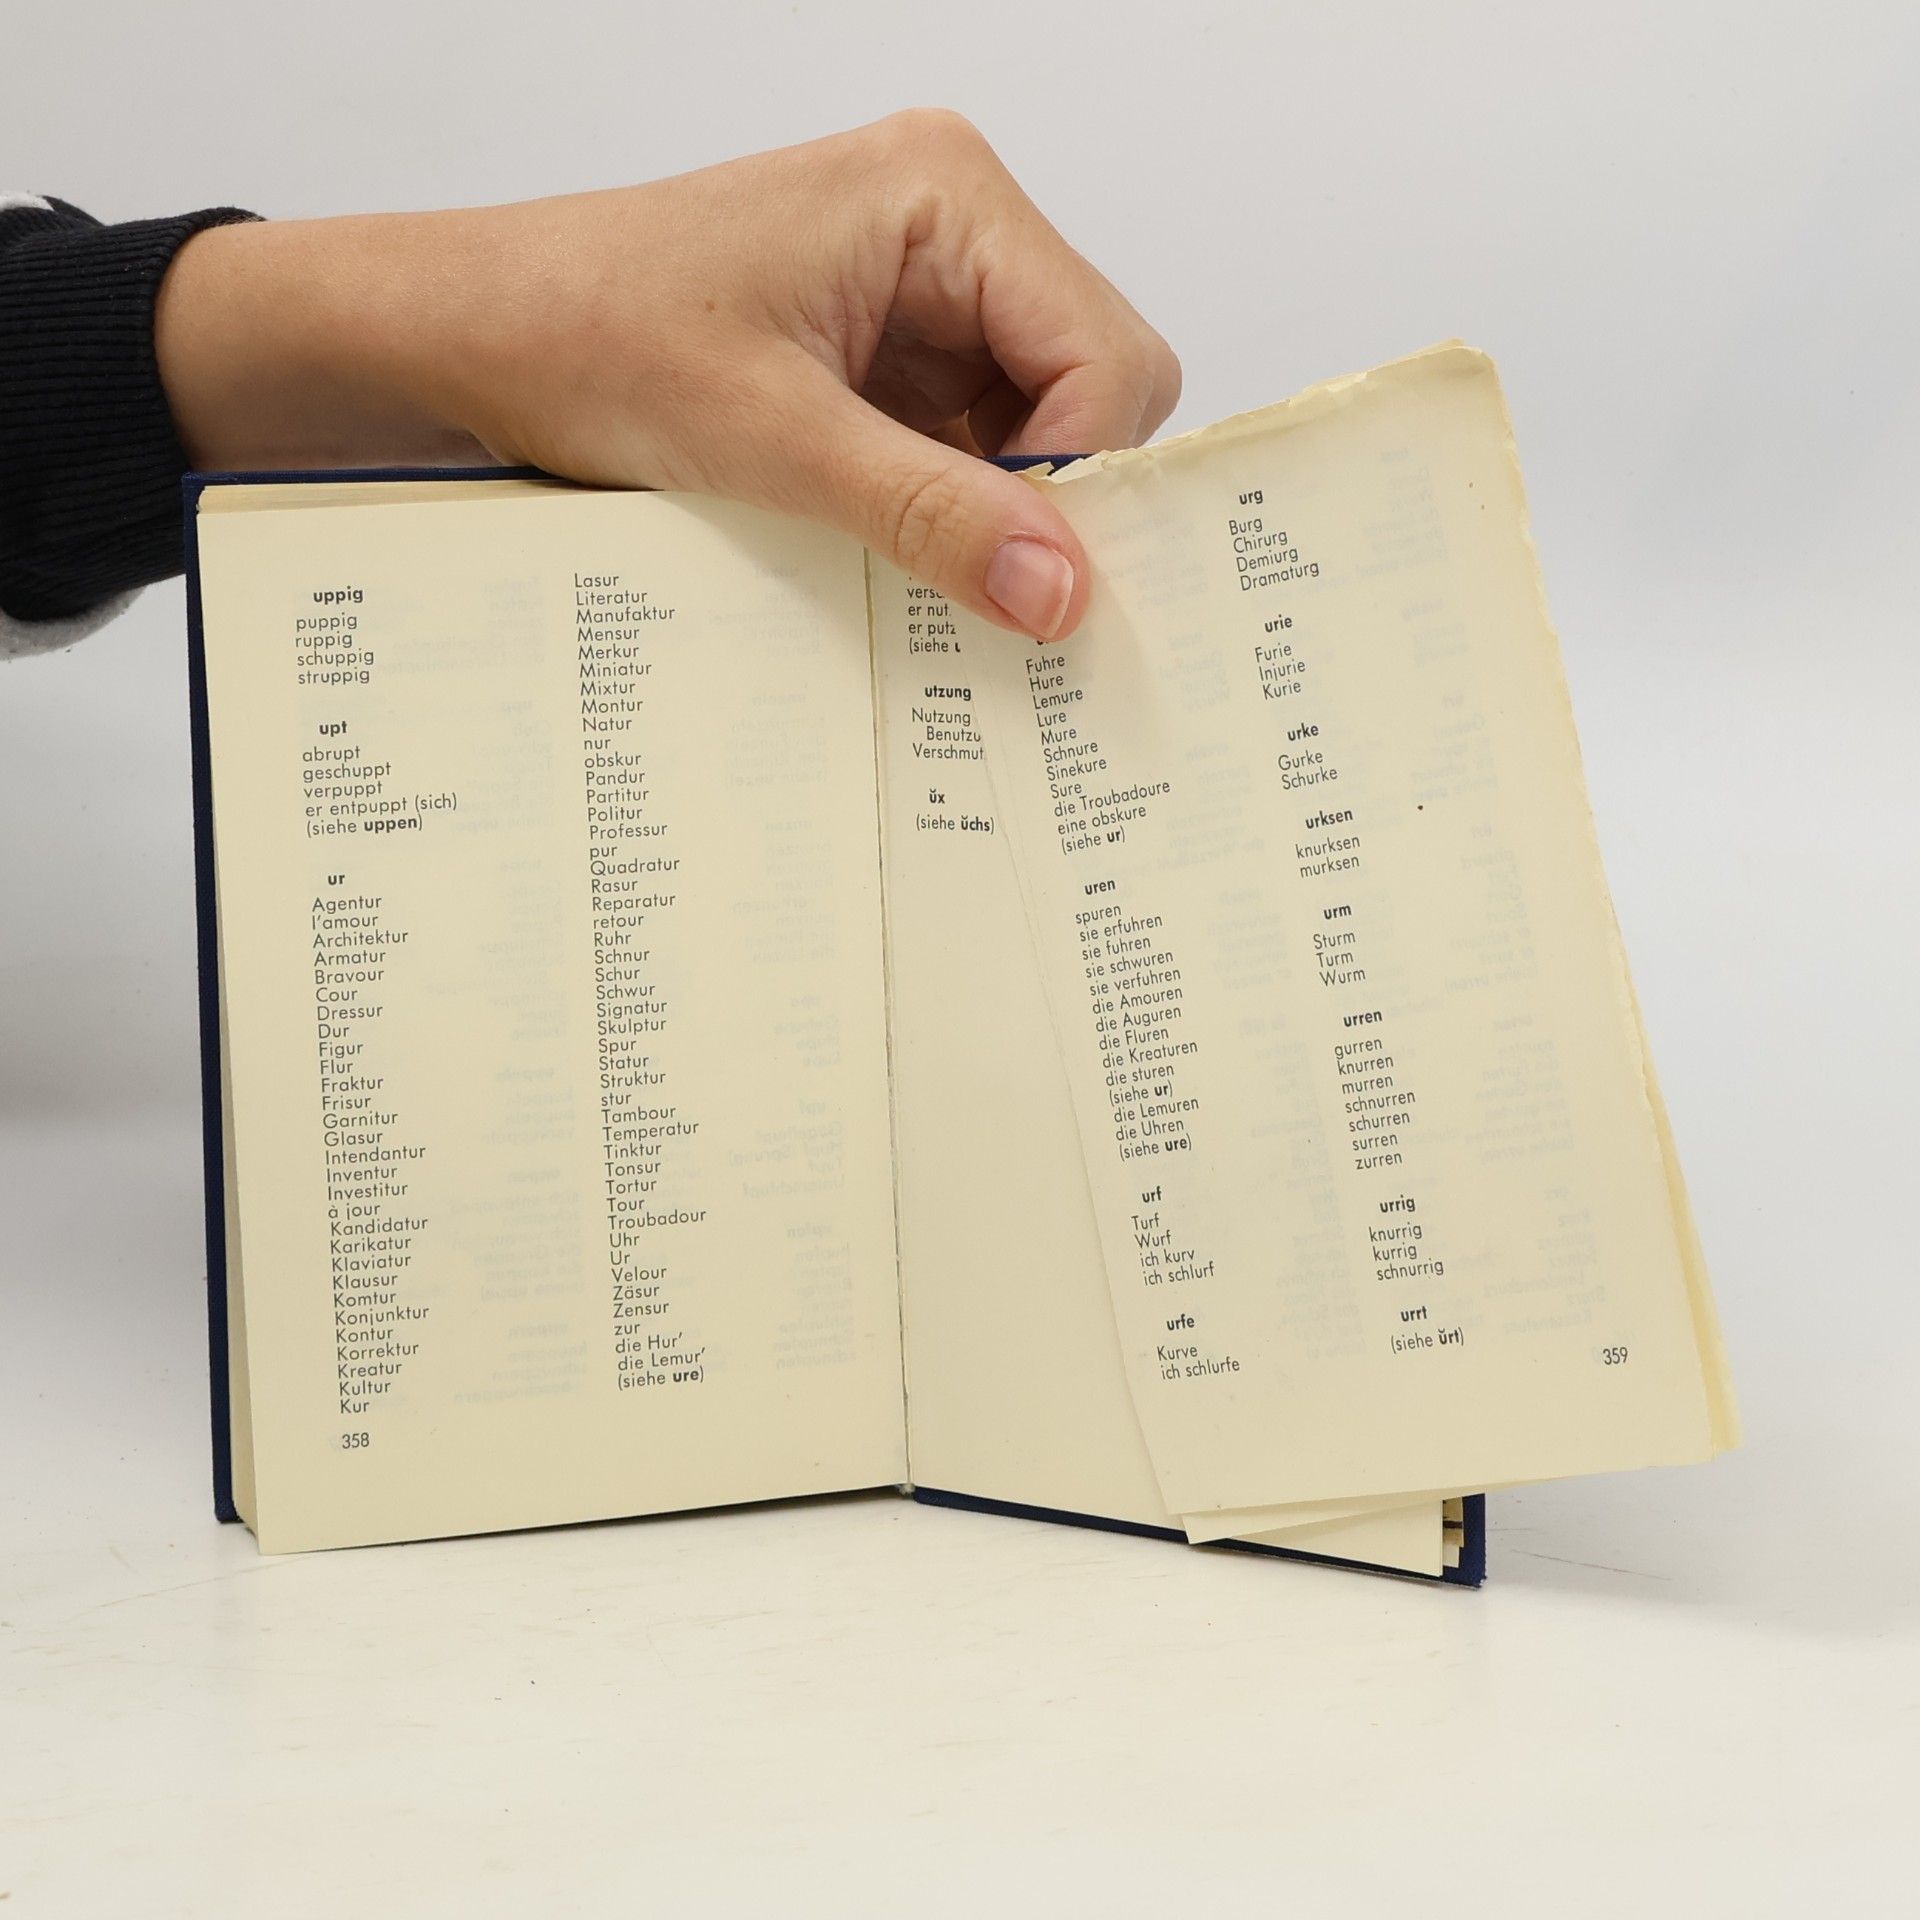 uppig
puppig
ruppig
schuppig
struppig
upt
abrupt
geschuppt
verpuppt
er entpuppt (sich)
(siehe uppen)
ur
Agentur
l'amour
Architektur
Armatur
Bravour
Cour
Dressur
Dur
Figur
Flur
Fraktur
Frisur
Garnitur
Glasur
Intendantur
Inventur
Investitur
à jour
Kandidatur
Karikatur
Klaviatur
Klausur
Komtur
Konjunktur
Kontur
Korrektur
Kreatur
Kultur
Kur
358
Lasur
Literatur
Manufaktur
Mensur
Merkur
Miniatur
Mixtur
Montur
Natur
nur
obskur
Pandur
Partitur
Politur
Professur
pur
Quadratur
Rasur
Reparatur
retour
Ruhr
Schnur
Schur
Schwur
Signatur
Skulptur
Spur
Statur
Struktur
stur
Tambour
Temperatur
Tinktur
Tonsur
Tortur
Tour
Troubadour
Uhr
Ur
Velour
Zäsur
Zensur
zur
die Hur'
die Lemur'
(siehe ure)
er
er
(siehe
utzung
Nutzung
Benutzu
Verschmut
ŭx
(siehe ŭchs)
Fuhre
Hure
Lemure
Lure
Mure
Schnure
Sinekure
Sure
die Troubadoure
eine obskure
(siehe ur)
uren
spuren
sie erfuhren
sie fuhren
sie schwuren
sie verfuhren
die Amouren
die Auguren
die Fluren
die Kreaturen
die sturen
(siehe ur)
die Lemuren
die Uhren
(siehe ure)
urf
Turf
Wurf
ich kurv
ich schlurf
urfe
Kurve
ich schlurfe
urg
Burg
Chirurg
Demiurg
Dramaturg
urie
Furie
Injurie
Kurie
urke
Gurke
Schurke
urksen
knurksen
murksen
urm
Sturm
Turm
Wurm
urren
gurren
knurren
murren
schnurren
schurren
surren
zurren
urrig
knurrig
kurrig
schnurrig
urrt
(siehe ŭrt)
359